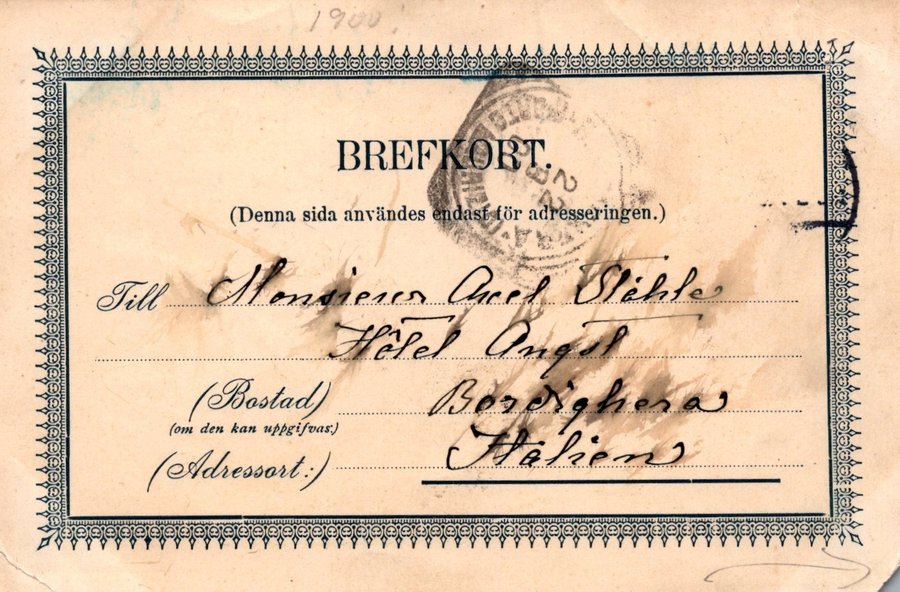 1900
BREFKORT.
(Denna sida användes endast för adresseringen.)
Till Monsieur Axel Ståhle
Hôtel Angst
(Bostad) Bordighera
(om den kan uppgifvas:)
(Adressort:) Italien